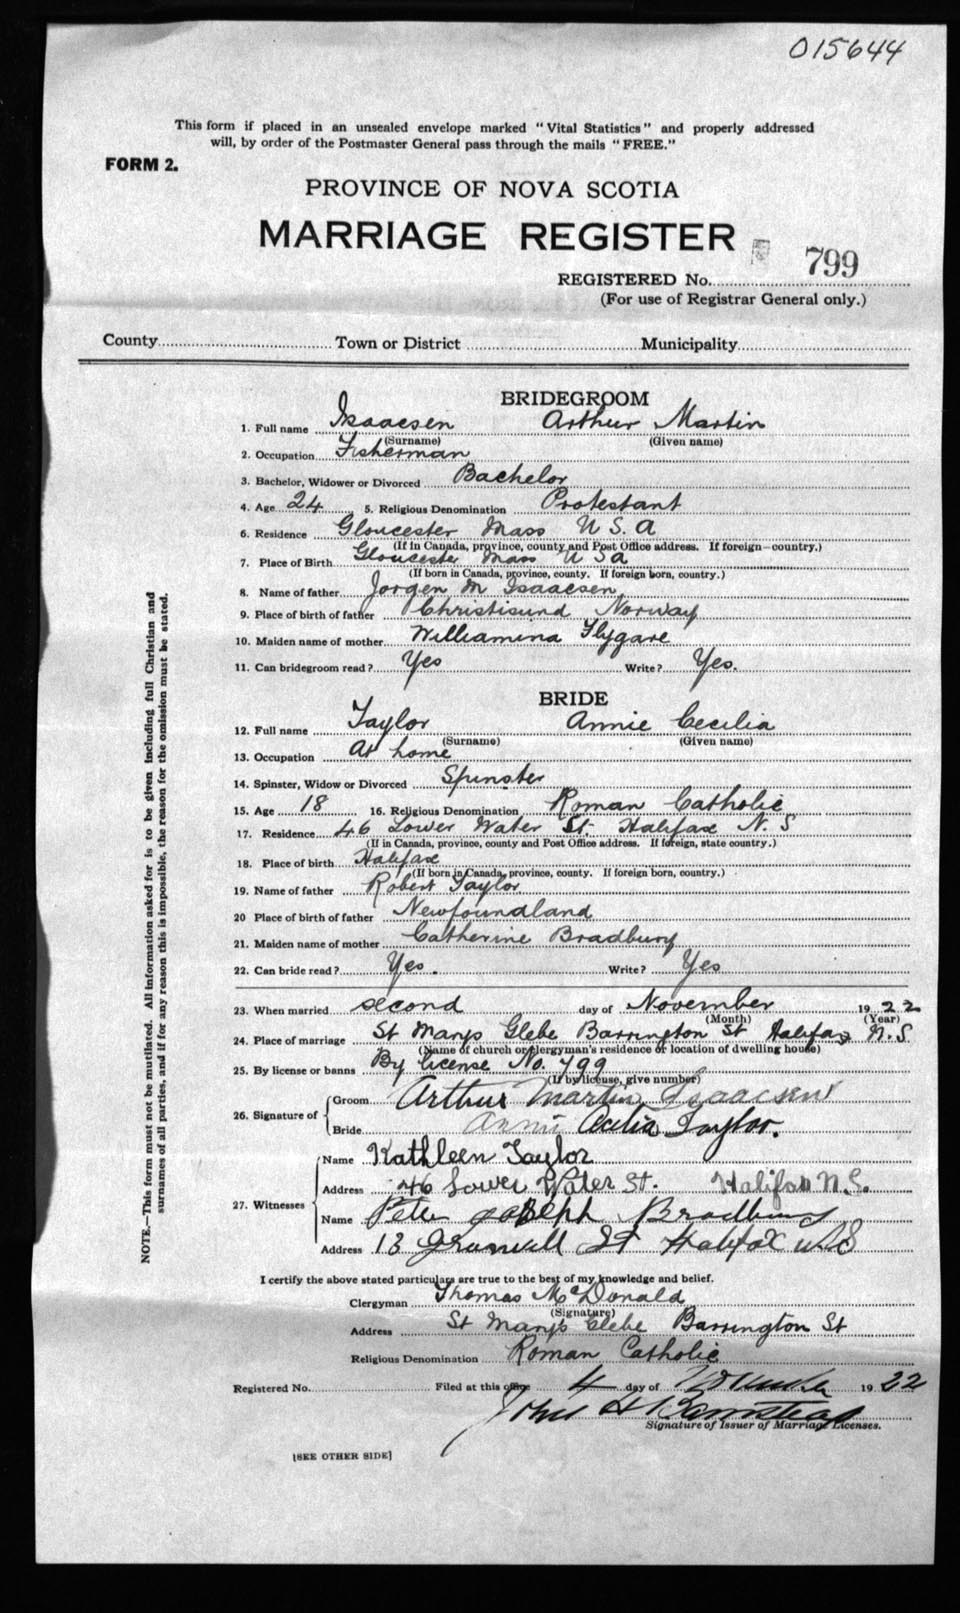 015644
This form if placed in an unsealed envelope marked "Vital Statistics" and properly addressed
will, by order of the Postmaster General pass through the mails "FREE."
FORM 2.
PROVINCE OF NOVA SCOTIA
MARRIAGE REGISTER
REGISTERED No. 799
(For use of Registrar General only.)
County Town or District Municipality
BRIDEGROOM
1. Full name Isaacsen Arthur Martin
(Surname) (Given name)
2. Occupation Fisherman
3. Bachelor, Widower or Divorced Bachelor
4. Age 24 5. Religious Denomination Protestant
6. Residence Gloucester Mass U S. A
(If in Canada, province, county and Post Office address. If foreign—country.)
7. Place of Birth Gloucester Mass U S A
(If born in Canada, province, county. If foreign born, country.)
8. Name of father Jorgen M Isaacsen
9. Place of birth of father Christisund Norway
10. Maiden name of mother Williamina Flygare
11. Can bridegroom read? Yes Write? Yes.
BRIDE
12. Full name Taylor Annie Cecilia
(Surname) (Given name)
13. Occupation At home
14. Spinster, Widow or Divorced Spinster
15. Age 18 16. Religious Denomination Roman Catholic
17. Residence 46 Lower Water St. Halifax N. S
(If in Canada, province, county and Post Office address. If foreign, state country.)
18. Place of birth Halifax
(If born in Canada, province, county. If foreign born, country.)
19. Name of father Robert Taylor
20 Place of birth of father Newfoundland
21. Maiden name of mother Catherine Bradbury
22. Can bride read? Yes. Write? Yes
23. When married second day of November 1922
(Month) (Year)
24. Place of marriage St Marys Glebe Barrington St Halifax N.S
(Name of church or clergyman's residence or location of dwelling house)
25. By license or banns By license No. 799
(If by license, give number)
26. Signature of Groom Arthur Martin Isaacsen
Bride Annie Cecilia Taylor.
27. Witnesses Name Kathleen Taylor
Address 46 Lower Water St. Halifax N.S.
Name Peter Joseph Bradbury
Address 13 St Halifax N.S
I certify the above stated particulars are true to the best of my knowledge and belief.
Clergyman Thomas McDonald
(Signature)
Address St Mary's Glebe Barrington St
Religious Denomination Roman Catholic
Registered No. Filed at this office 4 day of November 1922
John H
Signature of Issuer of Marriage Licenses.
[SEE OTHER SIDE]
NOTE.—This form must not be mutilated. All information asked for is to be given including full Christian and
surnames of all parties, and if for any reason this is impossible, the reason for the omission must be stated.